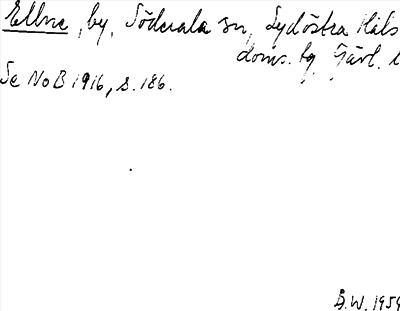 Ellne, by, Söderala sn, Sydöstra Häls
doms. hg Gävl. l
Se NoB 1916, s. 186.
B.W. 1959